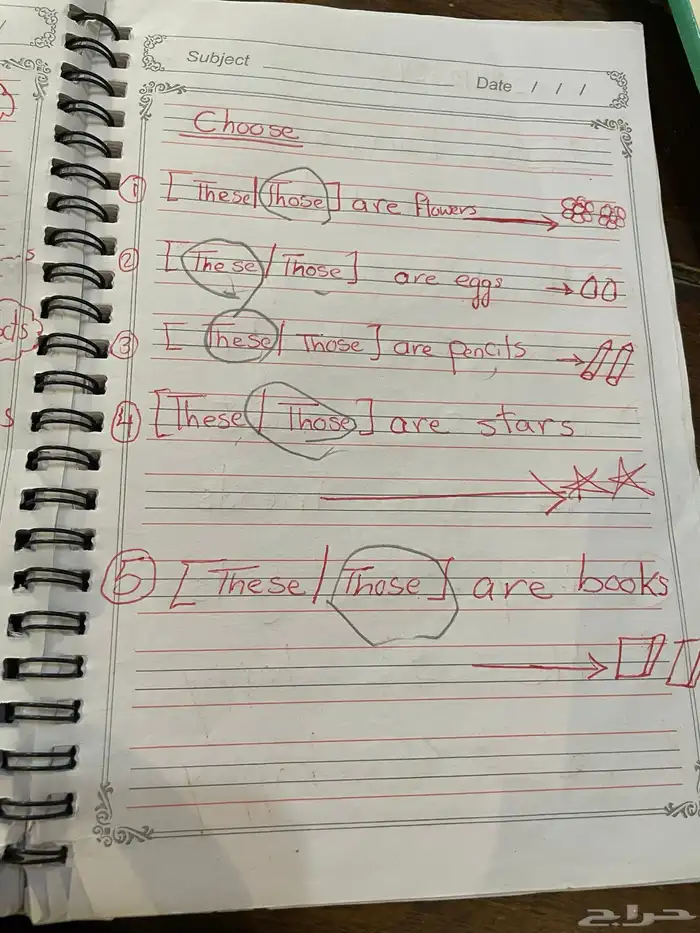 Subject
Date / / /
Choose
① [ These / Those ] are flowers
② [ These / Those ] are eggs
③ [ These / Those ] are pencils
④ [ These / Those ] are stars
⑤ [ These / Those ] are books
s
ds
s
حراج